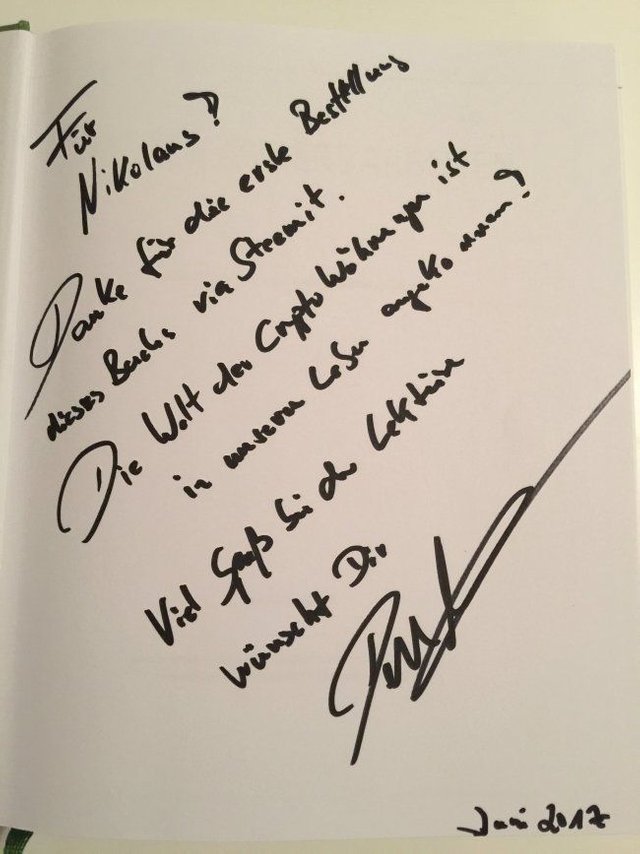 Für
Nikolaus!
Danke für die erste Bestellung
dieses Buchs via Steemit.
Die Welt der Cryptowährungen ist
in unserem Leben angekommen!
Viel Spaß bei der Lektüre
wünscht Dir
Juni 2017